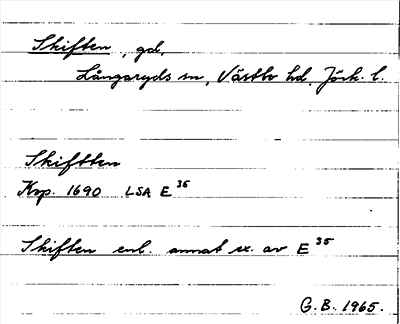 Skiften, gd,
Långaryds sn, Västbo hd, Jönk. l.
Skiftten
Krp. 1690 LSA E 36
Skiften enl. annat ex. av E 35
G.B. 1965.